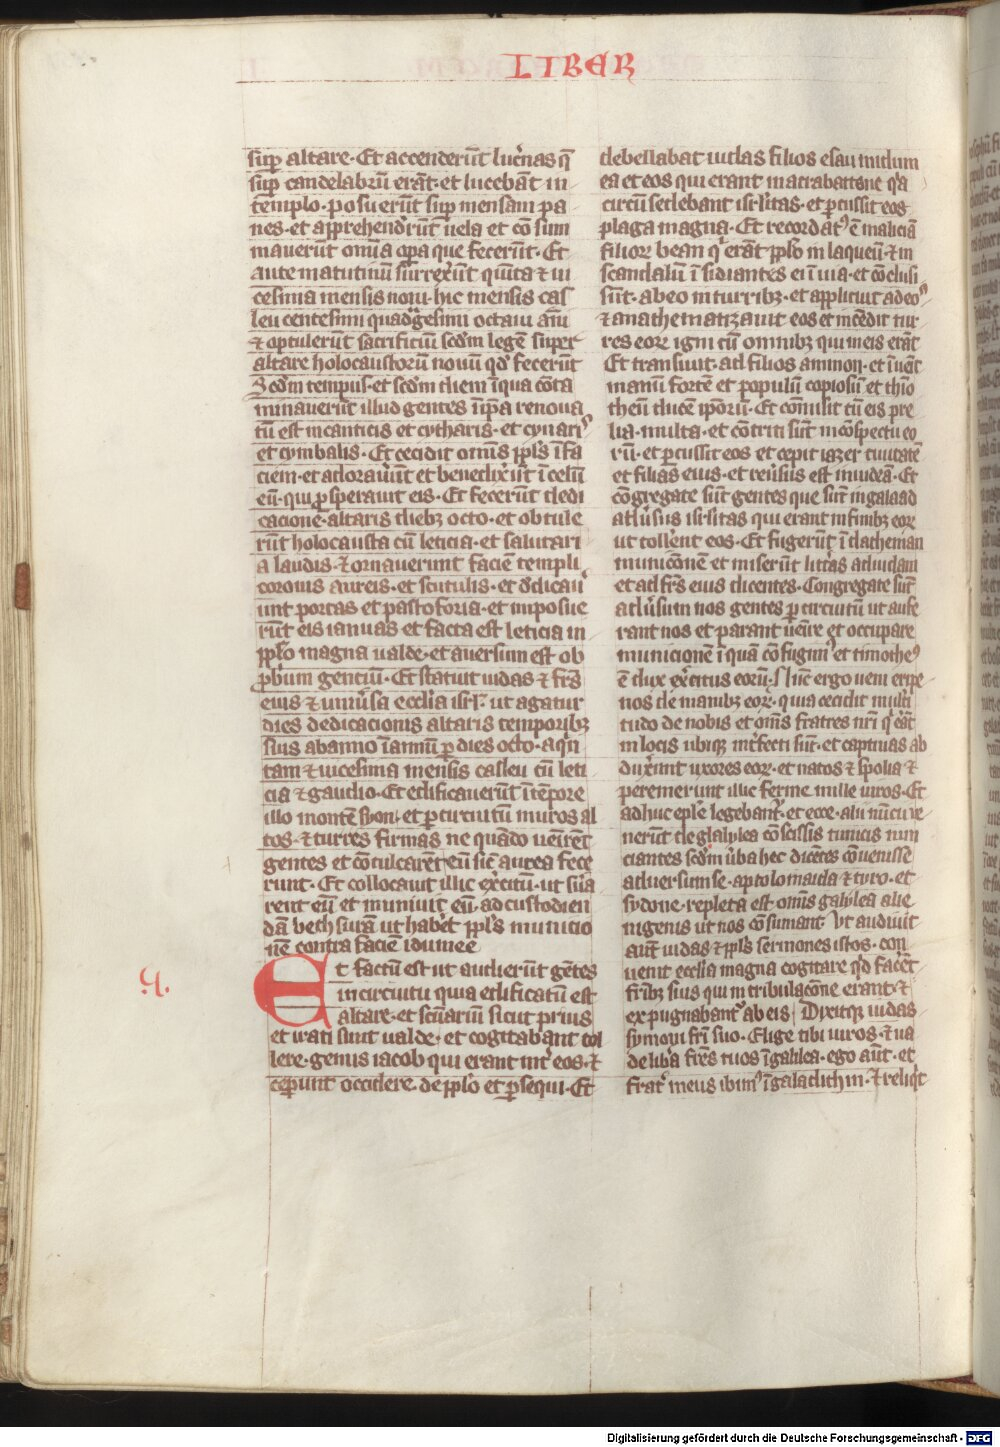 LIBER
sup̄ altare· Et accenderūt luc̓nas q̄
sup̄ candelabrū erāt· et lucebāt in
templo· posuerūt sup̄ mensam pa
nes· et apprehend̓rūt uela et cōsum
mauerūt om̄ia opera que fecerūt· Et
ante matutinū surrexer̄t quīta ⁊ ui
cesima mensis noni· hic mensis cas
leu centesimi quadrͣgesimi octaui ani
⁊ optulerūt sacrificiū scd̄m legē super
altare holocaustorū nouū qd̓ fecerūt
Scd̄m tempus· et scd̄m diem ī qua cōta
minauerūt illud gentes ī ip̄a renoua
tū est in canticis et cytharis· et cynaris
et cymbalis· Et cecidit omīs pp̄ls ī fa
ciem· et adorauer̄t et benedixer̄t ī celū
eū· qui ꝓsperauit eis· Et fecerūt dedi
cacionē· altaris diebꝫ octo· et obtule
rūt holocausta cū leticia· et salutari
a laudis· ⁊ ornauerunt faciē templi
coronis aureis· et scutulis· et d̓dicau̓
unt portas et pastoforia· et imposue
rūt eis ianuas et facta est leticia in
pp̄lo magna ualde· et auersum est ob
ꝓb̓um gentiū· Et statuit iudas ⁊ fr̄s
eius ⁊ uniu̓sa ecc̄lia isrl̓· ut agatur
dies dedicacionis altaris temporibꝫ
suis ab anno ī annū ꝑ dies octo· a qn̄
tam ⁊ uicesima mensis casleu cū leti
cia ⁊ gaudio· Et edificauerūt ī tēpore
illo montē syon· et ꝑ circuitū muros al
tos· ⁊ turres firmas ne quādo uenirēt
gentes et cōculcarēt eū sic̄ antea fece
runt· Et collocauit illic exc̓itū· ut s̓ua
rent eū et muniuit eū ad custodien
dā bethsurā ut habet̓ pp̄ls municio
nē contra faciē idumee
4.
Et factū est ut audierūt gētes
in circuitu quia edificatū est
altare· et sc̄uariū sicut prius
et irati sunt ualde· et cogitabant tol
lere· genus iacob qui erant int̓ eos· ⁊
cep̄unt occidere· de pp̄lo et ꝑsequi· Et
debellabat iudas filios esau in idum
ea et eos qui erant in acrabattene q̓a
circū sedebant isrl̓itas· et ꝑcussit eos
plaga magna· Et recordatꝰ ē maliciā
filioꝝ bean q̓ erāt pp̄lo in laqueū ⁊ in
scandalū īsidiantes ei ī uia· et cōclusi
sūt· ab eo in turribꝫ· et applicuit ad eos
⁊ anathematizauit eos et incēdit tur
res eoꝝ igni cū omnibꝫ qui in eis erāt
Et transiuit· ad filios ammon· et īuēit
manū fortē et populū copiosū et thio
theū ducē ip̄orū· Et cōmisit cū eis pre
lia· multa· et cōtriti sūt in cōspectu eo
rū· et ꝑcussit eos et cepit iazer ciuitatē
et filias eius· et reu̓sus est in iudeā· Et
cōgregate sūt gentes que sūt in galaad
adu̓sus isrl̓itas qui erant in finibꝫ eoꝝ
ut tollerēt eos· Et fugerūt ī datheman
municionē et miserūt litt̓as ad iudam
et ad fr̄s eius dicentes· Congregate sūt
adu̓sum nos gentes ꝑ circuitū ut aufe
rant nos et parant uenire et occupare
municionē ī quā cōfugimꝰ et timotheꝰ
ē dux exc̓itus eorū· nūc ergo ueni eripe
nos de manibꝫ eoꝝ· quia cecidit multi
tudo de nobis et om̄s fratres nr̄i q̓ erāt
in locis ubiqꝫ int̓fecti sūt· et captiuas ab
duxerunt uxores eoꝝ· et natos ⁊ spolia ⁊
peremerunt illic ferme mille uiros· Et
adhuc epl̄e legebant̓· et ecce· alii nūcii ue
nerūt de galylea cōscissis tunicis nun
ciantes scd̄m u̓ba hec dicētes cōuenisse
aduersum se· a ptolomaida ⁊ tyro· et
sydone· repleta est om̄is galylea alie
nigenis ut nos cōsumant· Ut audiuit
aūt iudas ⁊ pp̄ls sermones istos· con
uenit ecc̄lia magna cogitare qd̓ facer̄et
fr̄ibꝫ suis qui in tribulacōne erant· ⁊
expugnabantʳ ab eis· Dixitqꝫ iudas
symoni fr̄i suo· Elige tibi uiros· ⁊ ua
de lib̓a fr̄es tuos ī galilea· ego aūt· et
frat̓ meus ibimꝰ ī galadithin· ⁊ reliq̓t
Digitalisierung gefördert durch die Deutsche Forschungsgemeinschaft - DFG